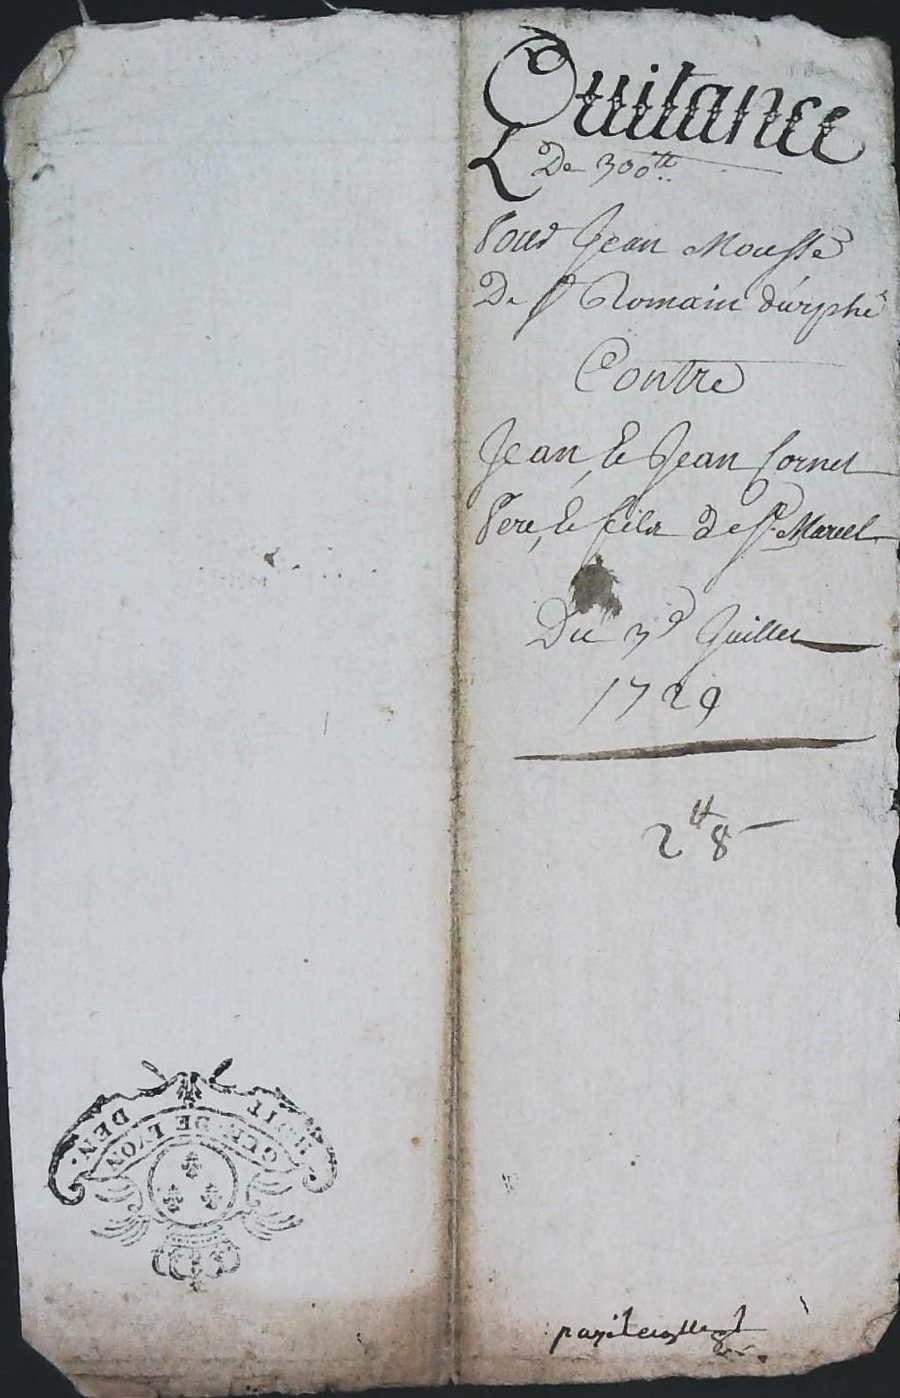 Quitance
De 300ᵗᵗ
Pour Jean Mousse
De Sᵗ Romain durphé
Contre
Jean, & Jean Cornet
Pere, & fils de Sᵗ. Marcel
Du 3ᵉ Juillet
1729
2ᵗᵗ 8
HUIT DEN.
GEN. DE LYON